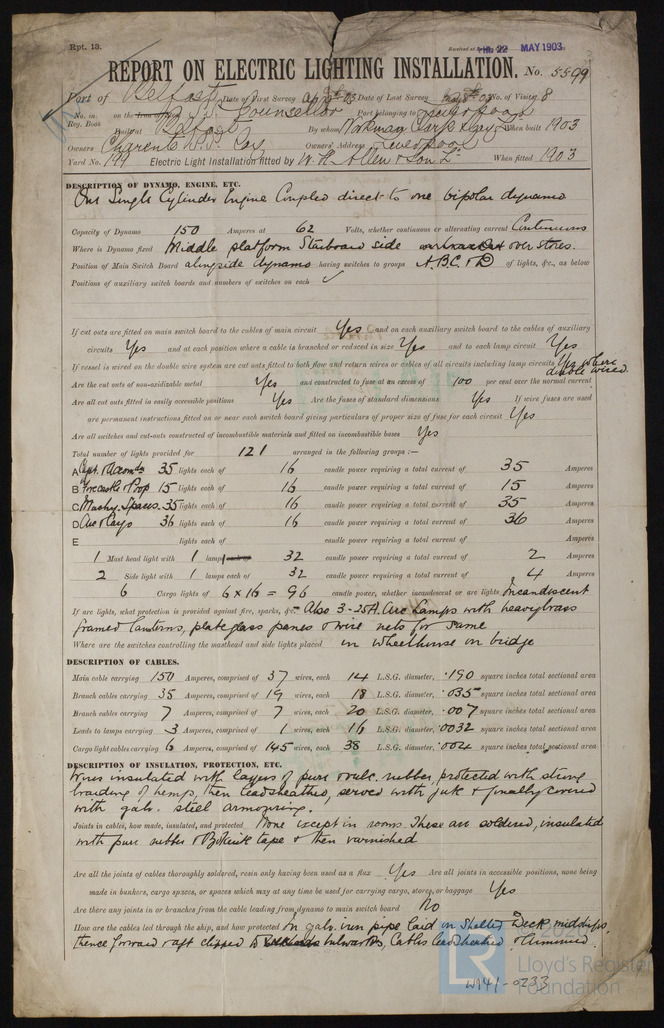 Rpt. 13.
22 MAY 1903
REPORT ON ELECTRIC LIGHTING INSTALLATION. No. 5599
Port of Belfast Date of First Survey Date of Last Survey No. of Visits 8
No. in Reg. Book on the S.S. Counsellor Port belonging to Liverpool
Built at Belfast By whom Workman Clark & Co When built 1903
Owners Charente S.S. Coy Owners' Address Liverpool
Yard No. 199 Electric Light Installation fitted by W. H. Allen & Son Ld When fitted 1903
DESCRIPTION OF DYNAMO, ENGINE, ETC.
One Single Cylinder Engine Coupled direct to one bipolar dynamo
Capacity of Dynamo 150 Amperes at 62 Volts, whether continuous or alternating current Continuous
Where is Dynamo fixed Middle platform Starboard side over stores.
Position of Main Switch Board alongside dynamo having switches to groups A.B.C. & D of lights, &c., as below
Positions of auxiliary switch boards and numbers of switches on each ✓
If cut outs are fitted on main switch board to the cables of main circuit Yes and on each auxiliary switch board to the cables of auxiliary
circuits Yes and at each position where a cable is branched or reduced in size Yes and to each lamp circuit Yes
If vessel is wired on the double wire system are cut outs fitted to both flow and return wires or cables of all circuits including lamp circuits Yes where
double wired.
Are the cut outs of non-oxidizable metal Yes and constructed to fuse at an excess of 100 per cent over the normal current
Are all cut outs fitted in easily accessible positions Yes Are the fuses of standard dimensions Yes If wire fuses are used
are permanent instructions fitted on or near each switch board giving particulars of proper size of fuse for each circuit Yes
Are all switches and cut-outs constructed of incombustible materials and fitted on incombustible bases Yes
Total number of lights provided for 121 arranged in the following groups :—
A Capt. & Accomdn 35 lights each of 16 candle power requiring a total current of 35 Amperes
B Forecastle & Poop 15 lights each of 16 candle power requiring a total current of 15 Amperes
C Machy. Spaces. 35 lights each of 16 candle power requiring a total current of 35 Amperes
D 36 lights each of 16 candle power requiring a total current of 36 Amperes
E lights each of candle power requiring a total current of Amperes
1 Mast head light with 1 lamp each of 32 candle power requiring a total current of 2 Amperes
2 Side light with 1 lamps each of 32 candle power requiring a total current of 4 Amperes
6 Cargo lights of 6 x 16 = 96 candle power, whether incandescent or arc lights Incandescent
If arc lights, what protection is provided against fire, sparks, &c. Also 3-25A. Arc Lamps with heavy brass
framed lanterns, plate glass panes & wire nets for same
Where are the switches controlling the masthead and side lights placed in wheelhouse on bridge
DESCRIPTION OF CABLES.
Main cable carrying 150 Amperes, comprised of 37 wires, each 14 L.S.G. diameter, .190 square inches total sectional area
Branch cables carrying 35 Amperes, comprised of 19 wires, each 18 L.S.G. diameter, .035 square inches total sectional area
Branch cables carrying 7 Amperes, comprised of 7 wires, each 20 L.S.G. diameter, .007 square inches total sectional area
Leads to lamps carrying 3 Amperes, comprised of 1 wires, each 16 L.S.G. diameter, .0032 square inches total sectional area
Cargo light cables carrying 6 Amperes, comprised of 145 wires, each 38 L.S.G. diameter, .004 square inches total sectional area
DESCRIPTION OF INSULATION, PROTECTION, ETC.
Wires insulated with layers of pure & vulc. rubber, protected with strong
braiding of hemp, then leadsheathed, served with jute & finally covered
with galv. steel armouring.
Joints in cables, how made, insulated, and protected None except in rooms. These are soldered, insulated
with pure rubber & tape & then varnished
Are all the joints of cables thoroughly soldered, resin only having been used as a flux Yes Are all joints in accessible positions, none being
made in bunkers, cargo spaces, or spaces which may at any time be used for carrying cargo, stores, or baggage Yes
Are there any joints in or branches from the cable leading from dynamo to main switch board No
How are the cables led through the ship, and how protected In galv. iron pipe laid on Shelter Deck midships,
thence forward & aft clipped to bulwarks, Cables leadsheathed & armoured.
LR
Lloyd's Register
Foundation
W141-0233